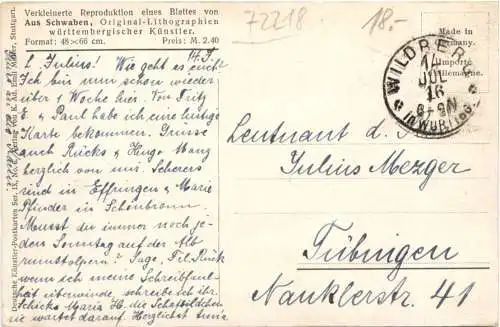 Verkleinerte Reproduktion eines Blattes von
Aus Schwaben, Original-Lithographien
württembergischer Künstler.
Format: 48×66 cm. Preis: M. 2.40
72218
18.-
Made in
Germany.
Importé
Allemagne.
WILDBERG
14
JUL
16
8-9N
IN WÜRTTBG
L. Julius! Wie geht es euch?
Bin ich nun schon wieder
über 1 Woche hier. Von Fritz
& Paul habe ich eine lustige
Karte bekommen. Grüsse
auch Ricks & Hugo Wanz
herzlich von mir. Scherers
sind in Effringen & Marie
Pfinder in Schönbronn.
Musst du immer noch je-
den Sonntag auf der Alb
rumstolpern? Sage, Frl. Rück
wenn ich meine Schreibfaul-
heit überwinde, schreibe ich ihr.
Schicke Maria H. die Schafbildchen
sie wartet darauf. Herzlichst
Leutnant d. R.
Julius Mezger
Tübingen
Nauklerstr. 41
Deutsche Künstler-Postkarten Ser. IX, No.
Stuttgart.